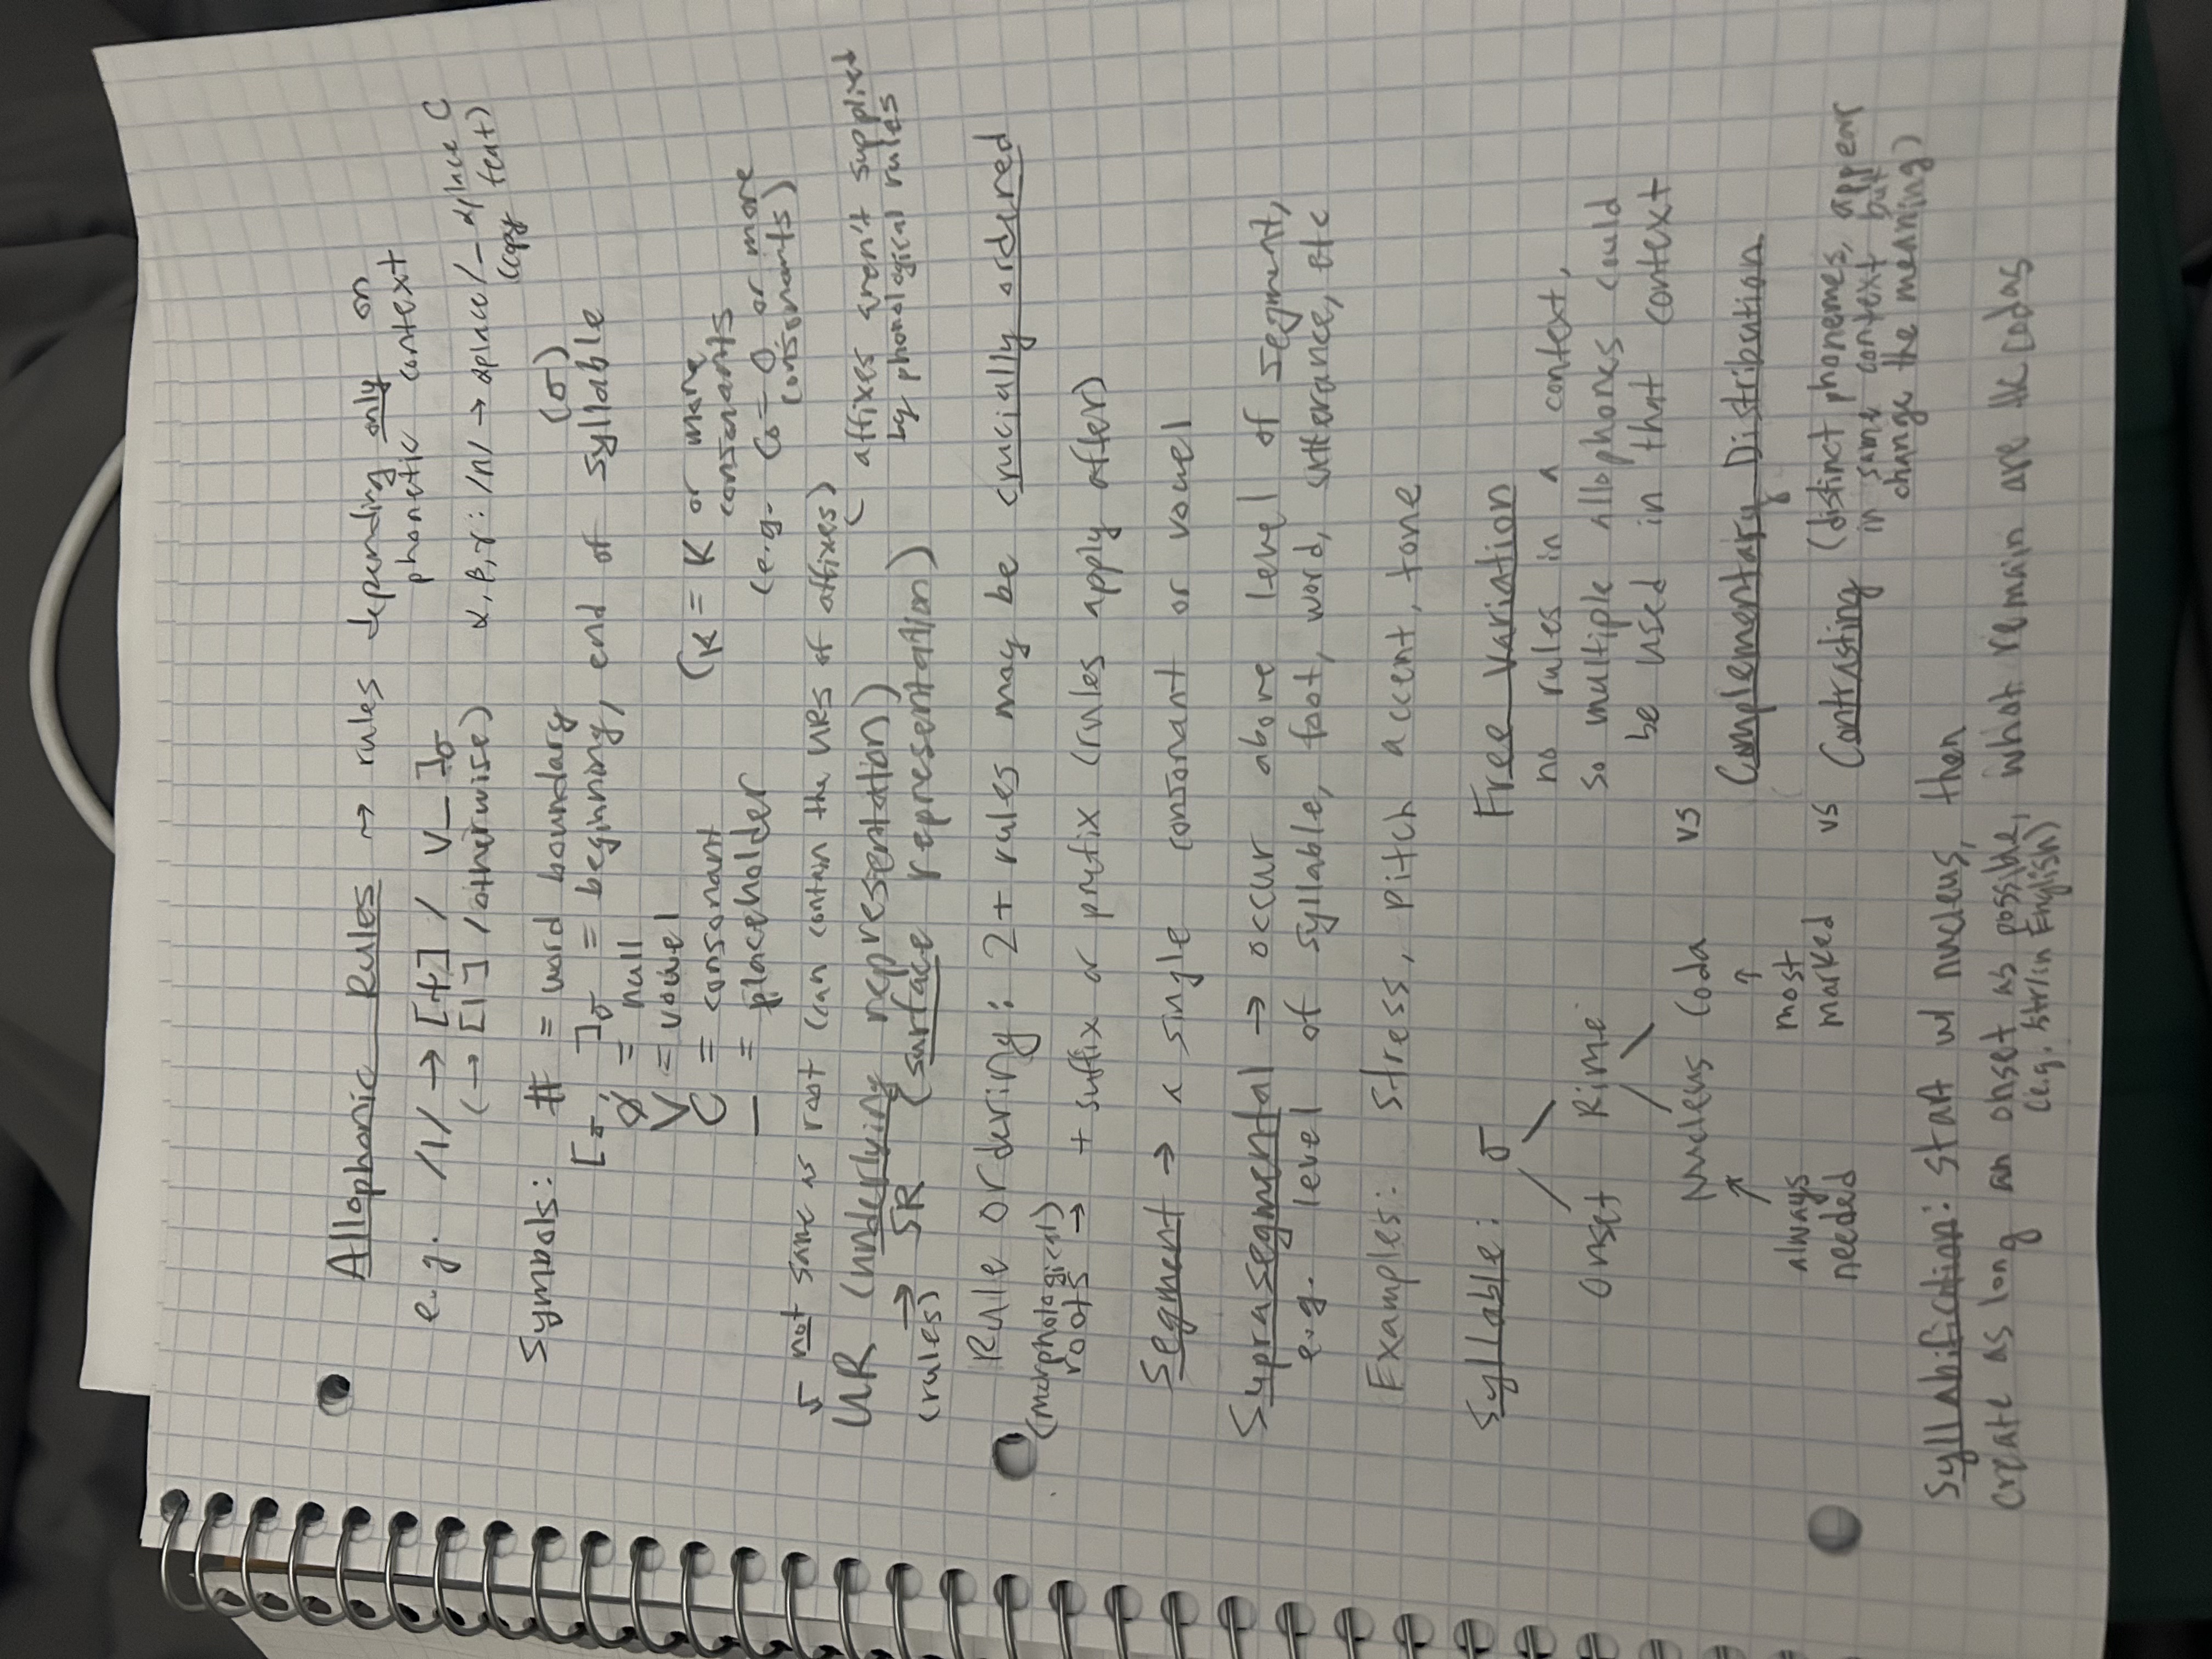 Allophonic Rules → rules depending only on
phonetic context
e.g. /l/ → [ɫ] / V_ ]σ
(→ [l] / otherwise)
α, β, γ: /n/ → αplace / _ αplace C
(copy feat)
Symbols: # = word boundary
(σ)
[σ, ]σ = beginning, end of syllable
Ø = null
V = vowel
C = consonant
_ = placeholder
CK = K or more
consonants
(e.g. C0 = 0 or more
consonants)
↳ not same as root (can contain the URs of affixes)
UR (underlying representation)
↳ affixes aren't supplied
by phonological rules
→ SR (surface representation)
(rules)
Rule ordering: 2+ rules may be crucially ordered
(morphological)
roots → + suffix or prefix (rules apply after)
Segment → a single consonant or vowel
Suprasegmental → occur above level of segment,
e.g. level of syllable, foot, word, utterance, etc
Examples: stress, pitch accent, tone
Syllable: σ
Onset Rime
Nucleus Coda
↑ ↑
always
needed
most
marked
Free Variation
no rules in a context,
so multiple allophones could
be used in that context
vs
Complementary Distribution
vs Contrasting (distinct phonemes, appear
in same context but
change the meaning)
Syllabification: start w/ nucleus, then
create as long an onset as possible, what remain are the codas
(e.g. str/in English)